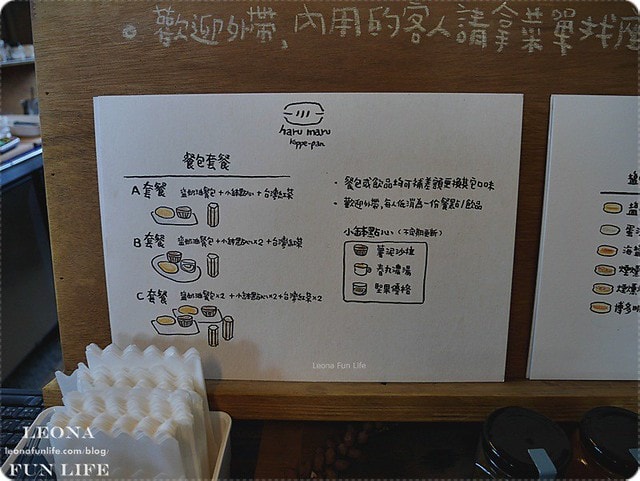 歡迎外帶，內用的客人請拿菜單找座
haru maru
koppe-pan
餐包套餐
A 套餐 鹽奶油餐包 + 小缽點心 + 台灣紅茶
B 套餐 鹽奶油餐包 + 小缽點心 x 2 + 台灣紅茶
C 套餐 鹽奶油餐包 x 2 + 小缽點心 x 2 + 台灣紅茶 x 2
- 餐包或飲品均可補差額更換其它口味
- 歡迎外帶，每人低消為一份餐點/飲品
小缽點心（不定期更新）
薯泥沙拉
濃湯
堅果優格
鹽
蛋沙
海鹽
煙燻
煙燻
Leona Fun Life
LEONA
leonafunlife.com/blog/
FUN LIFE